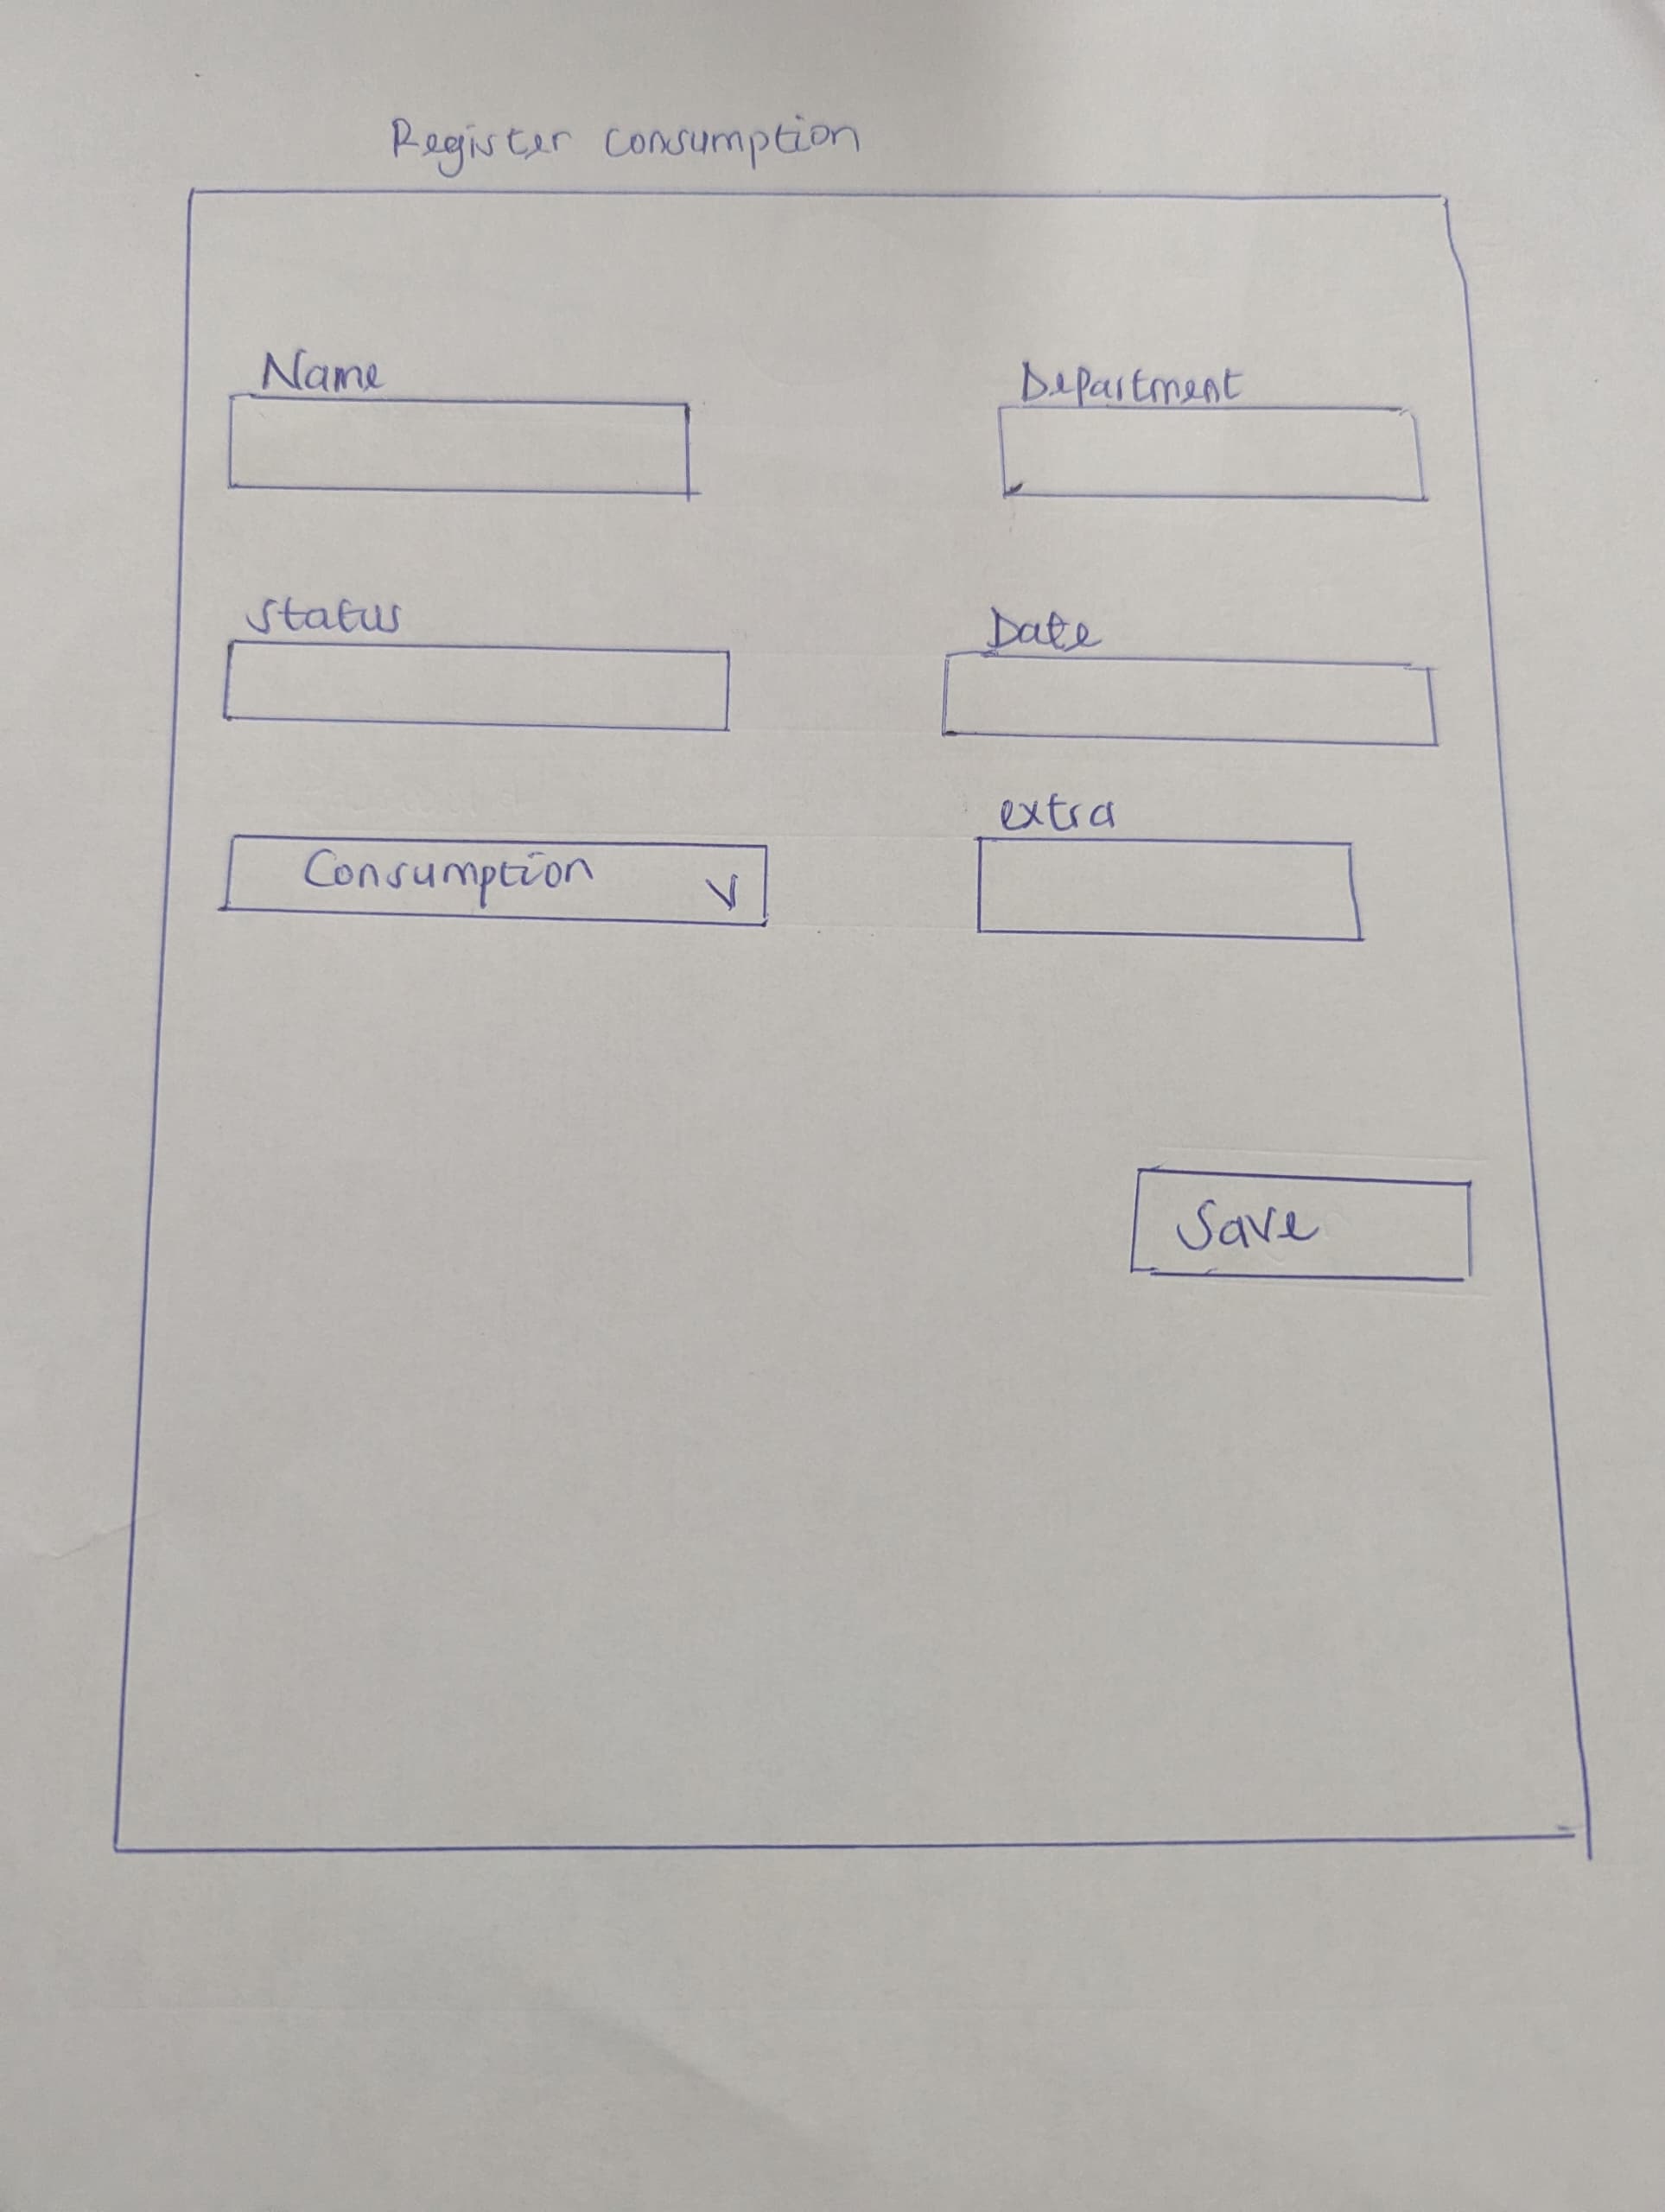 Register consumption
Name
Department
Status
Date
extra
Consumption
Save